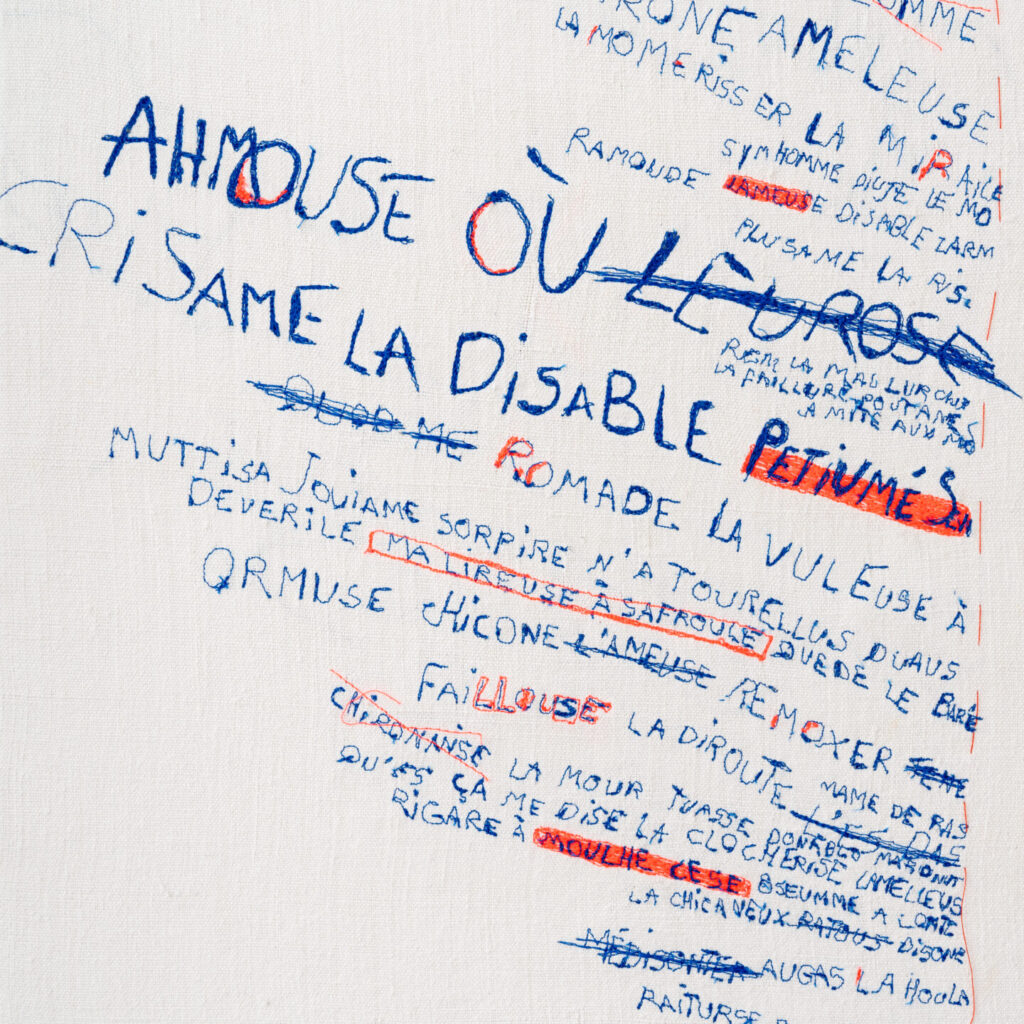 OMME
RONE AMELEUSE
LA MOMERISSER LA MIRAILE
SYMHOMME DIUTE LE MO
RAMOUDE LAMEUSE DISABLE LARM
PLUSAME LA RIS
AHMOUSE OÙ LÈUROSE
REM LA
LA FAILLURE POSTAMES
A MITE AUX
CRISAME LA DISABLE PETIUMÉS EN
ME ROMADE LA VULEUSE À
MUTTISA JOUIAME SORPIRE N'A TOURELLUS DUAUS
DEVERILE MA LIREUSE À SAFROULE QUEDE LE BARIE
ORMUSE CHICONE L'AMEUSE REMOXER
FAILLOUSE LA DIROUTE MAME DE RAS
CHIRONINSE LA MOUR TUASSE DONABLO MARONIT
QU'ES ÇA ME DISE LA CLOCHERISE LAMELLEUS
RIGARE À MOULHE CESE BSEUMME A LOMTE
LA CHICANEUX RATOUS DISONE
MÉDISONTER AUGAS LA HOULA
RAITURSE